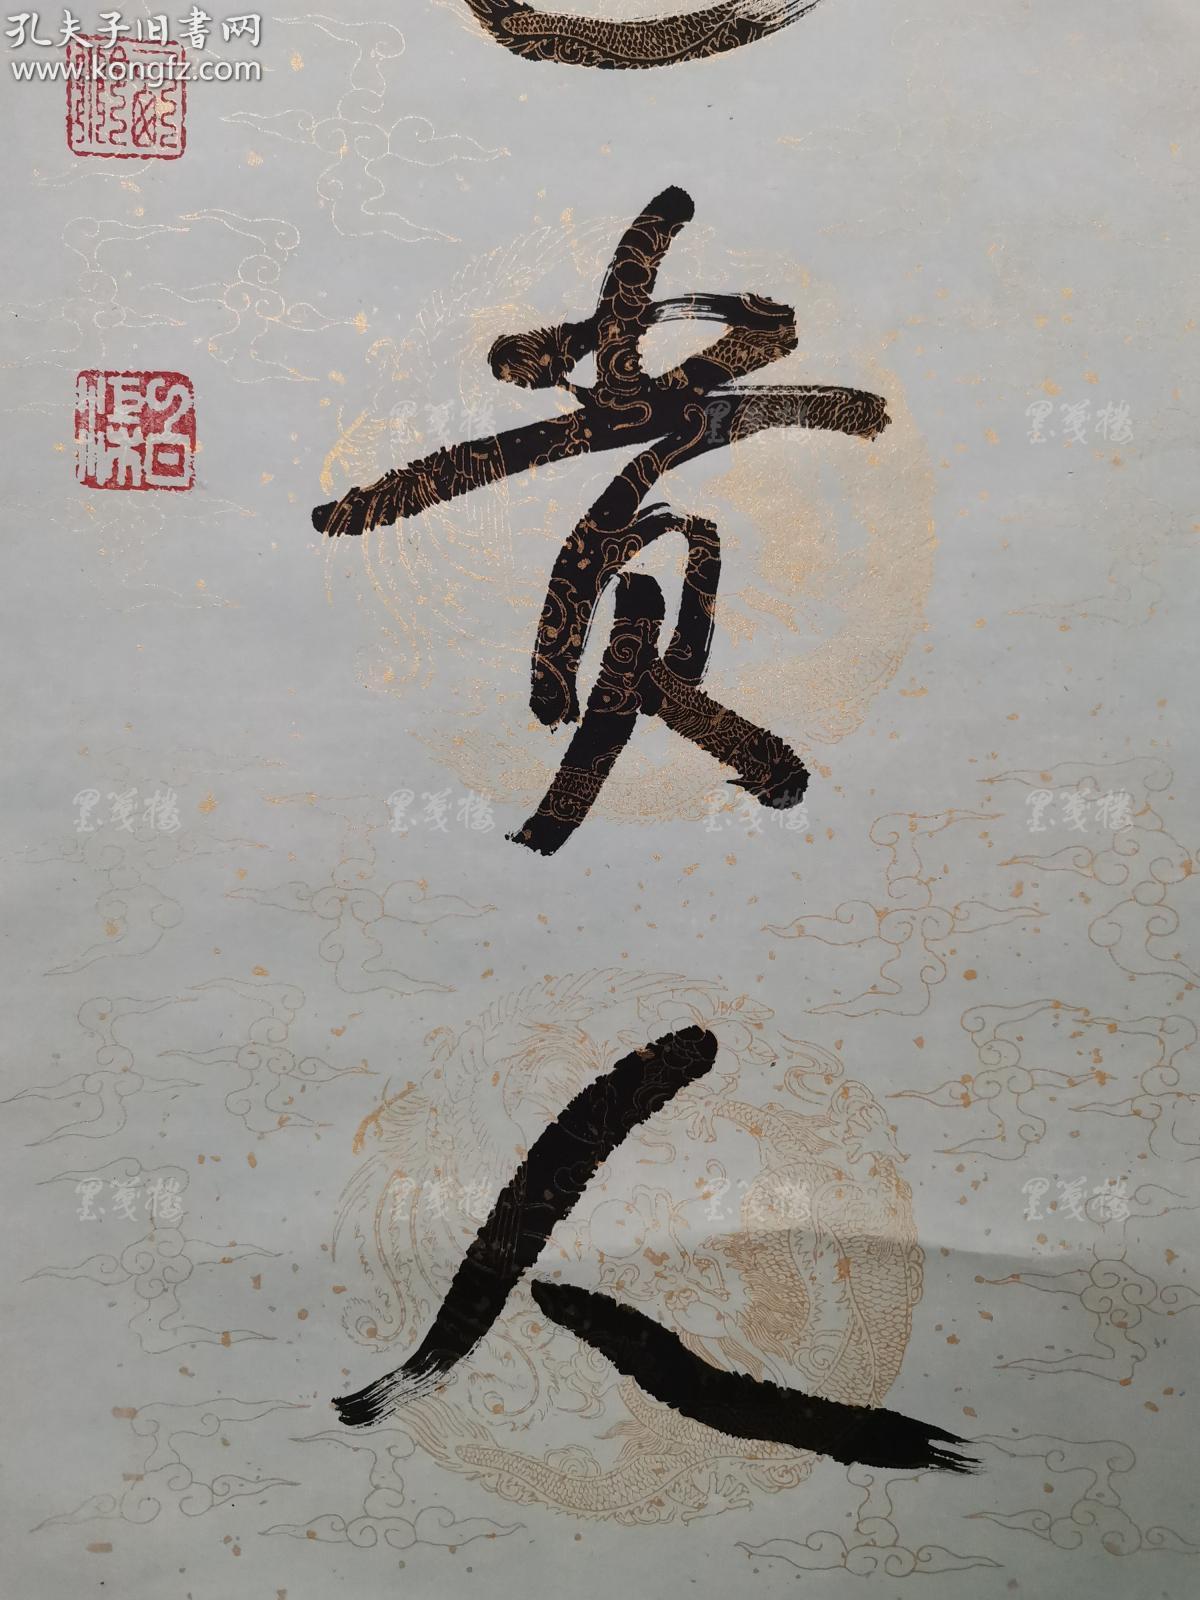 孔夫子旧書网
www.kongfz.com
贵
人
墨笺楼 墨笺楼 墨笺楼
墨笺楼 墨笺楼 墨笺楼 墨笺楼
墨笺楼 墨笺楼 墨笺楼 墨笺楼